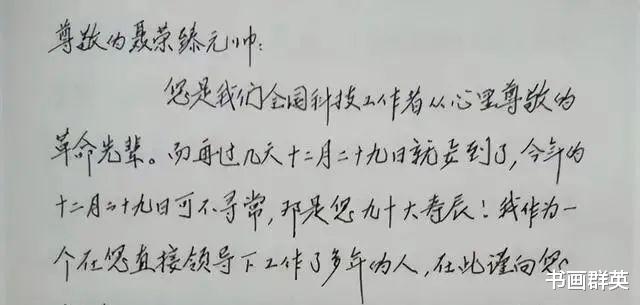 尊敬的聂荣臻元帅：
您是我们全国科技工作者从心里尊敬的
革命先辈。而再过几天十二月二十九日就要到了，今年的
十二月二十九日可不寻常，那是您九十大寿辰！我作为一
个在您直接领导下工作了多年的人，在此谨向您
书画群英